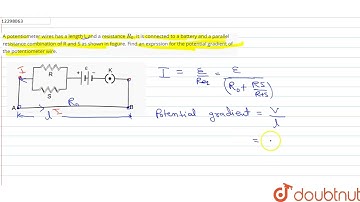 12298063
A potentiometer wires has a length L and a resistance R₀. It is connected to a battery and a parallel
resistance combination of R and S as shown in fogure. Find an expression for the potential gradient of
the potentiometer wire.
I R E K
S
A R₀ B
l I
I = E/Req = E/(R₀ + RS/R+S)
Potential gradient = V/l
=
doubtnut